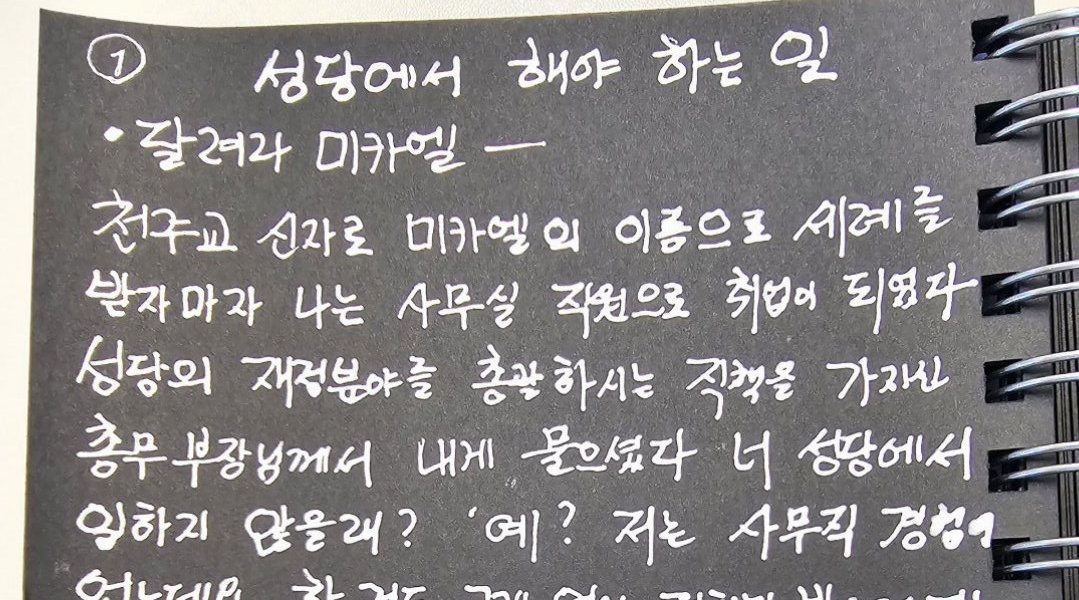 ①
성당에서 해야 하는 일
• 달려라 미카엘 —
천주교 신자로 미카엘의 이름으로 세례를
받자마자 나는 사무실 직원으로 취업이 되었다
성당의 재정분야를 총괄하시는 직책을 가지신
총무부장님께서 내게 물으셨다 너 성당에서
일하지 않을래? '예? 저는 사무직 경험이